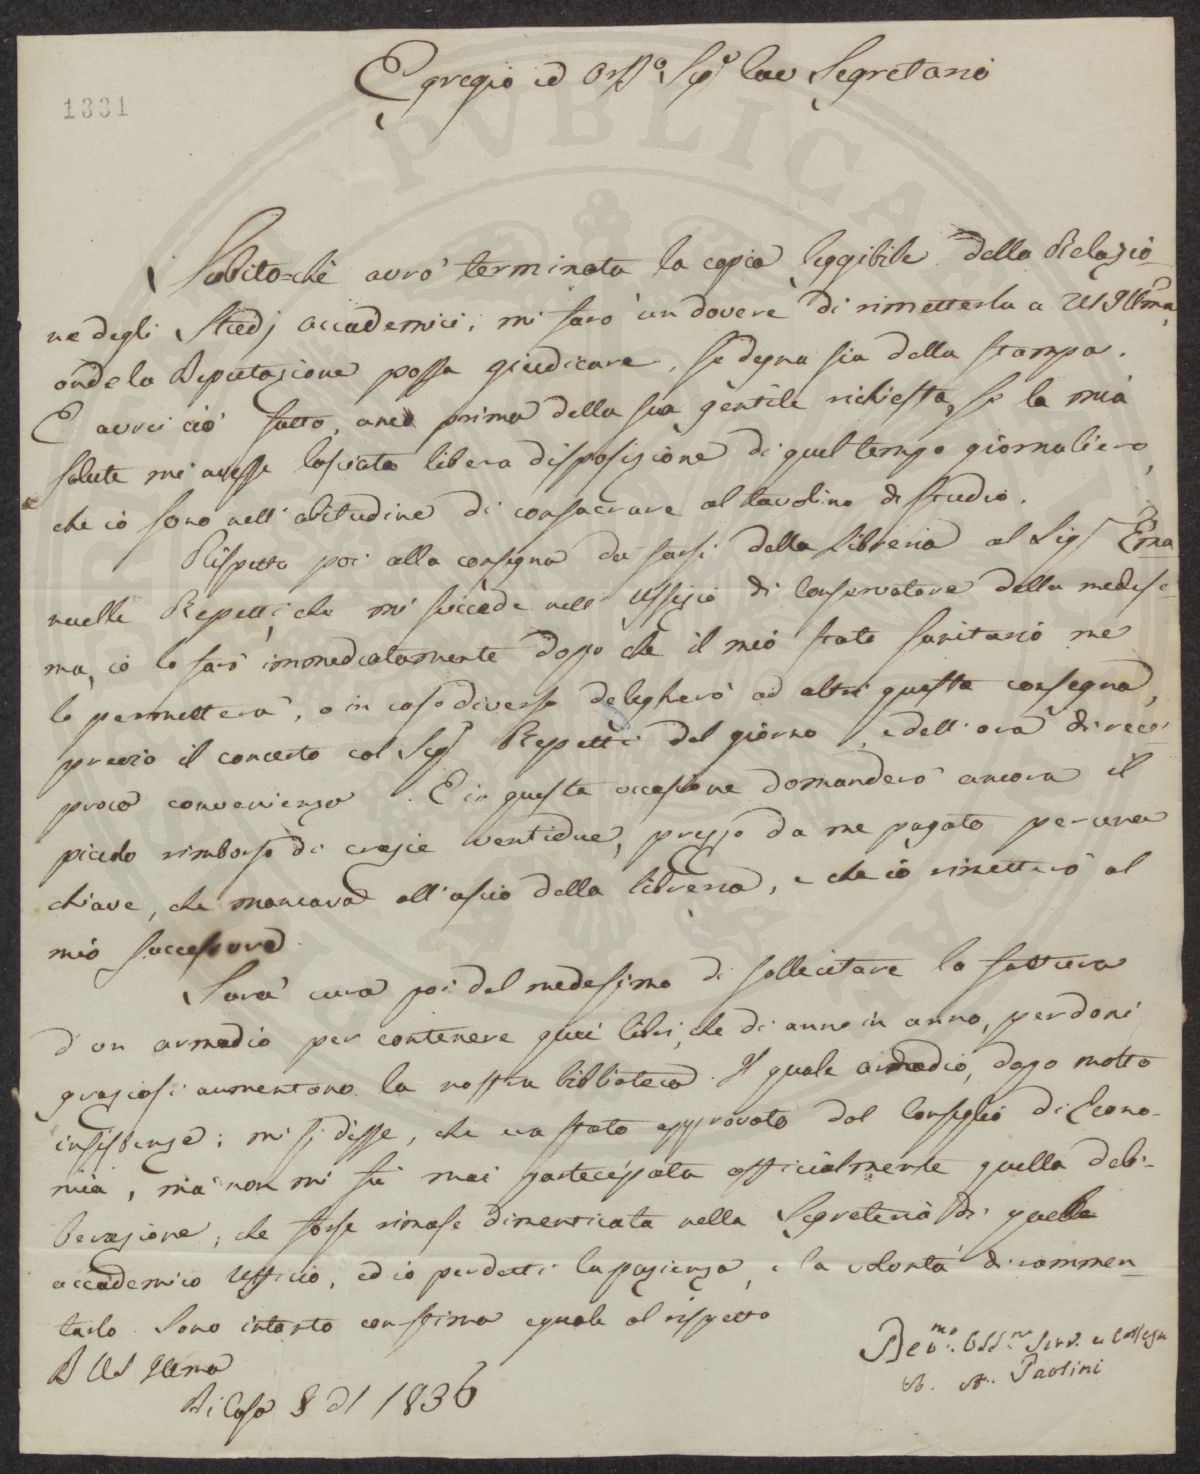 1331
Egregio ed Oss.o Sig.e Cav Segretario
Subito-chè avrò terminata la copia leggibile della Relazio-
ne degli Studj accademici, mi farò un dovere di rimetterla a VS Illma,
onde la Deputazione possa giudicare, se degna sia della stampa.
E avrei ciò fatto, anco prima della sua gentile richiesta, se la mia
salute mi avesse lasciata libera disposizione di quel tempo giornaliero,
che io sono nell'abitudine di consacrare al tavolino di studio.
Rispetto poi alla consegna da farsi della Libreria al Sig.r Ema
nuelle Repetti, che mi succede nell' Uffizio di Conservatore della medesi-
ma, io lo farò immediatamente dopo che il mio stato sanitario me
lo permetterà, o in caso diverso delegherò ad altri questa consegna,
previo il concerto col Sig.r Repetti del giorno, e dell'ora di reci
proca convenienza. E in questa occasione domanderò ancora il
piccolo rimborso di crazie ventidue, prezzo da me pagato per una
chiave, che mancava all'uscio della libreria, e che io rimetterò al
mio successore.
Sarà cura poi del medesimo di sollecitare la fattura
d'un armadio per contenere quei libri, che di anno in anno, per doni
graziosi aumentano la nostra biblioteca. Il quale armadio, dopo molte
insistenze, mi si disse, che era stato approvato dal Consiglio di Econo-
mia, ma non mi fu mai partecipata officialmente quella deli-
berazione, che forse rimase dimenticata nella Segreteria di quello
accademico Uffizio, ed io perdetti la pazienza, e la volontà di rammen-
tarlo. Sono intanto con stima eguale al rispetto
D VS Illma
Di Casa 8 dl 1836
Dev.mo Obb.mo Serv. e Collega
Paolini